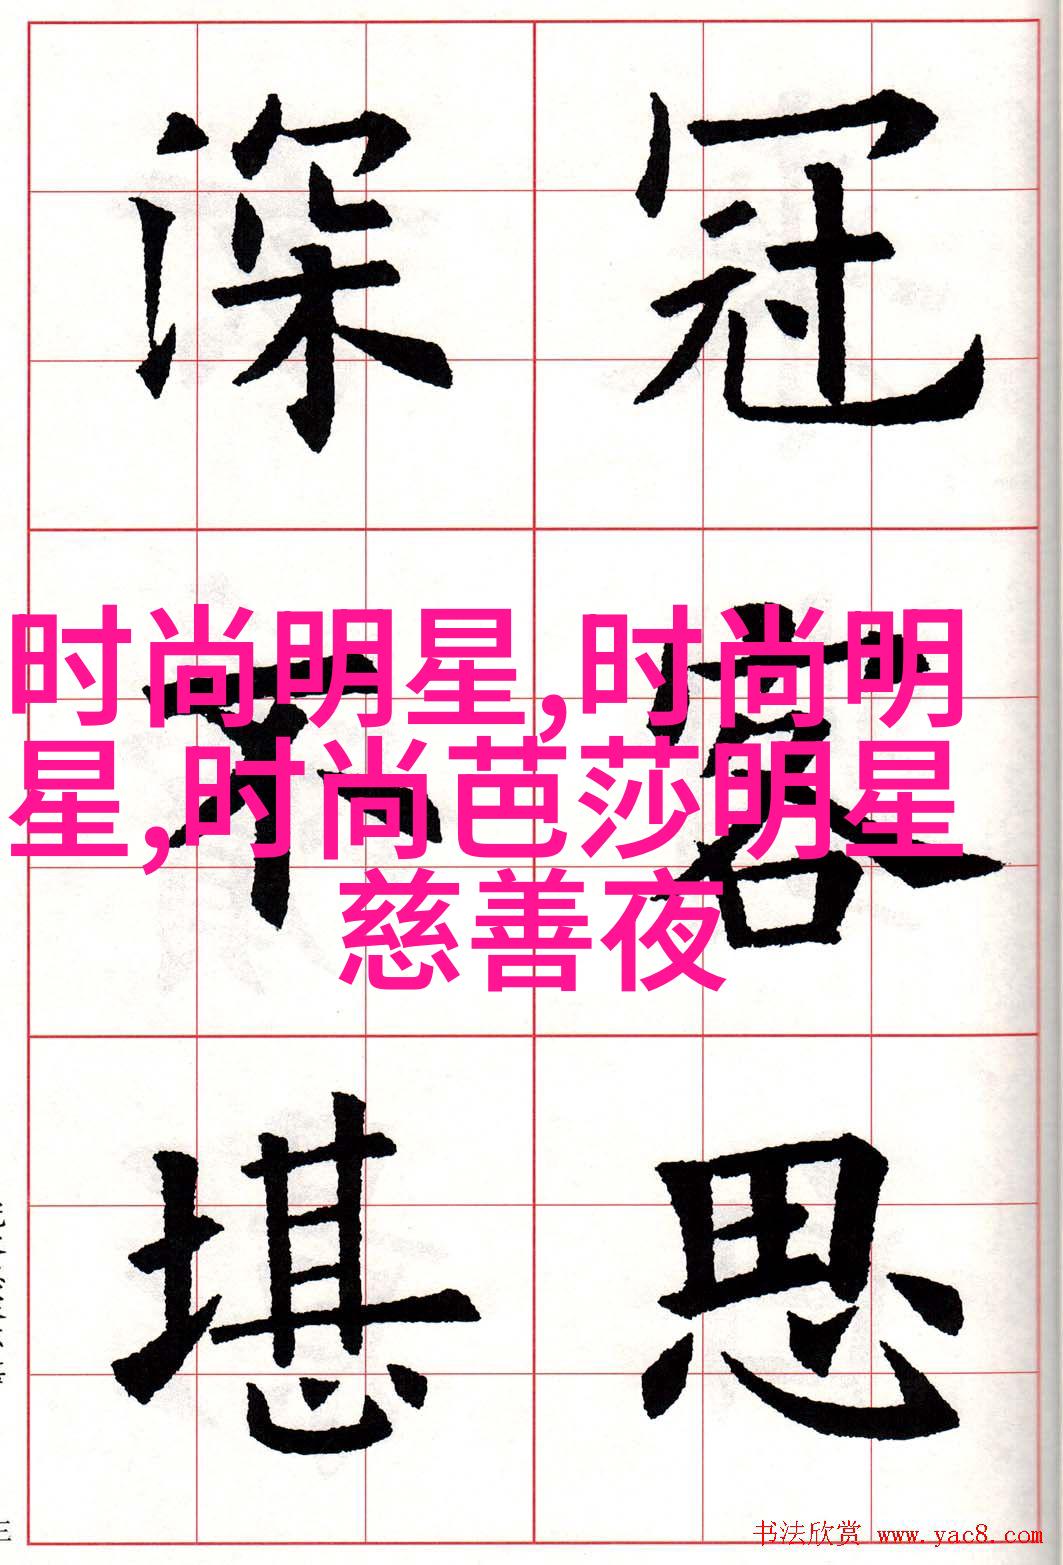 冠
容
思
深
不
堪
时尚明星,时尚明
星,时尚芭莎明星
慈善夜
书法欣赏 www.yac8.com